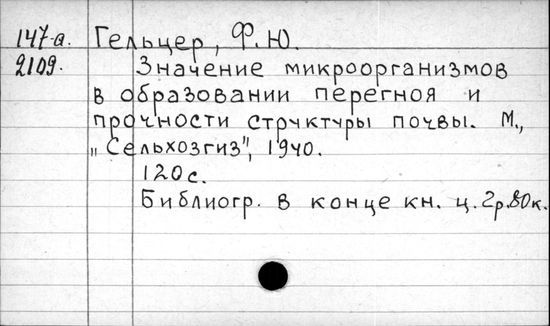 147-а. Гельцер, Ф.Ю.
2109. Значение микроорганизмов
в образовании перегноя и
прочности структуры почвы. М.,
„Сельхозгиз", 1940.
120 с.
Библиогр. в конце кн. ц. 2р.80к.